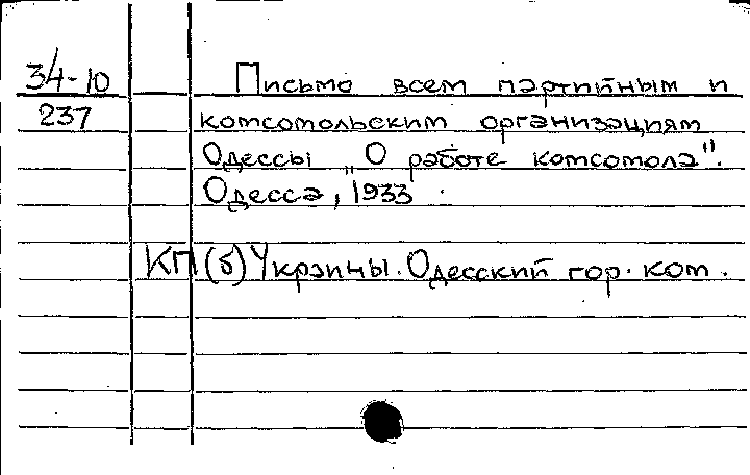 34-10
237
Письмо всем партийным и
комсомольским организациям
Одессы „О работе комсомола".
Одесса, 1933.
КП(б) Украины. Одесский гор. ком.